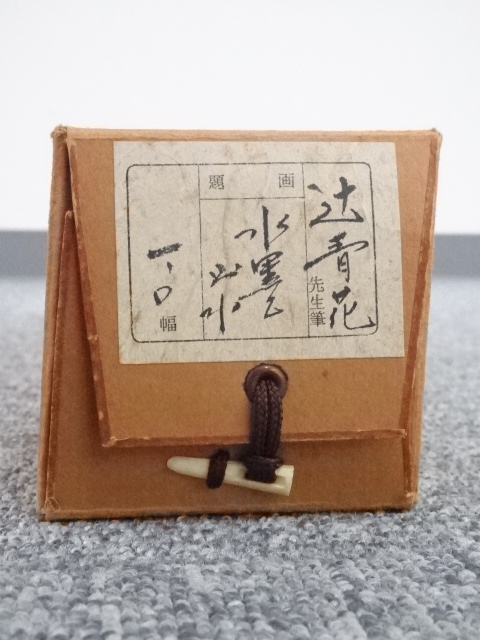 辻青花
先生筆
画題
水墨
山水
一、〇
幅